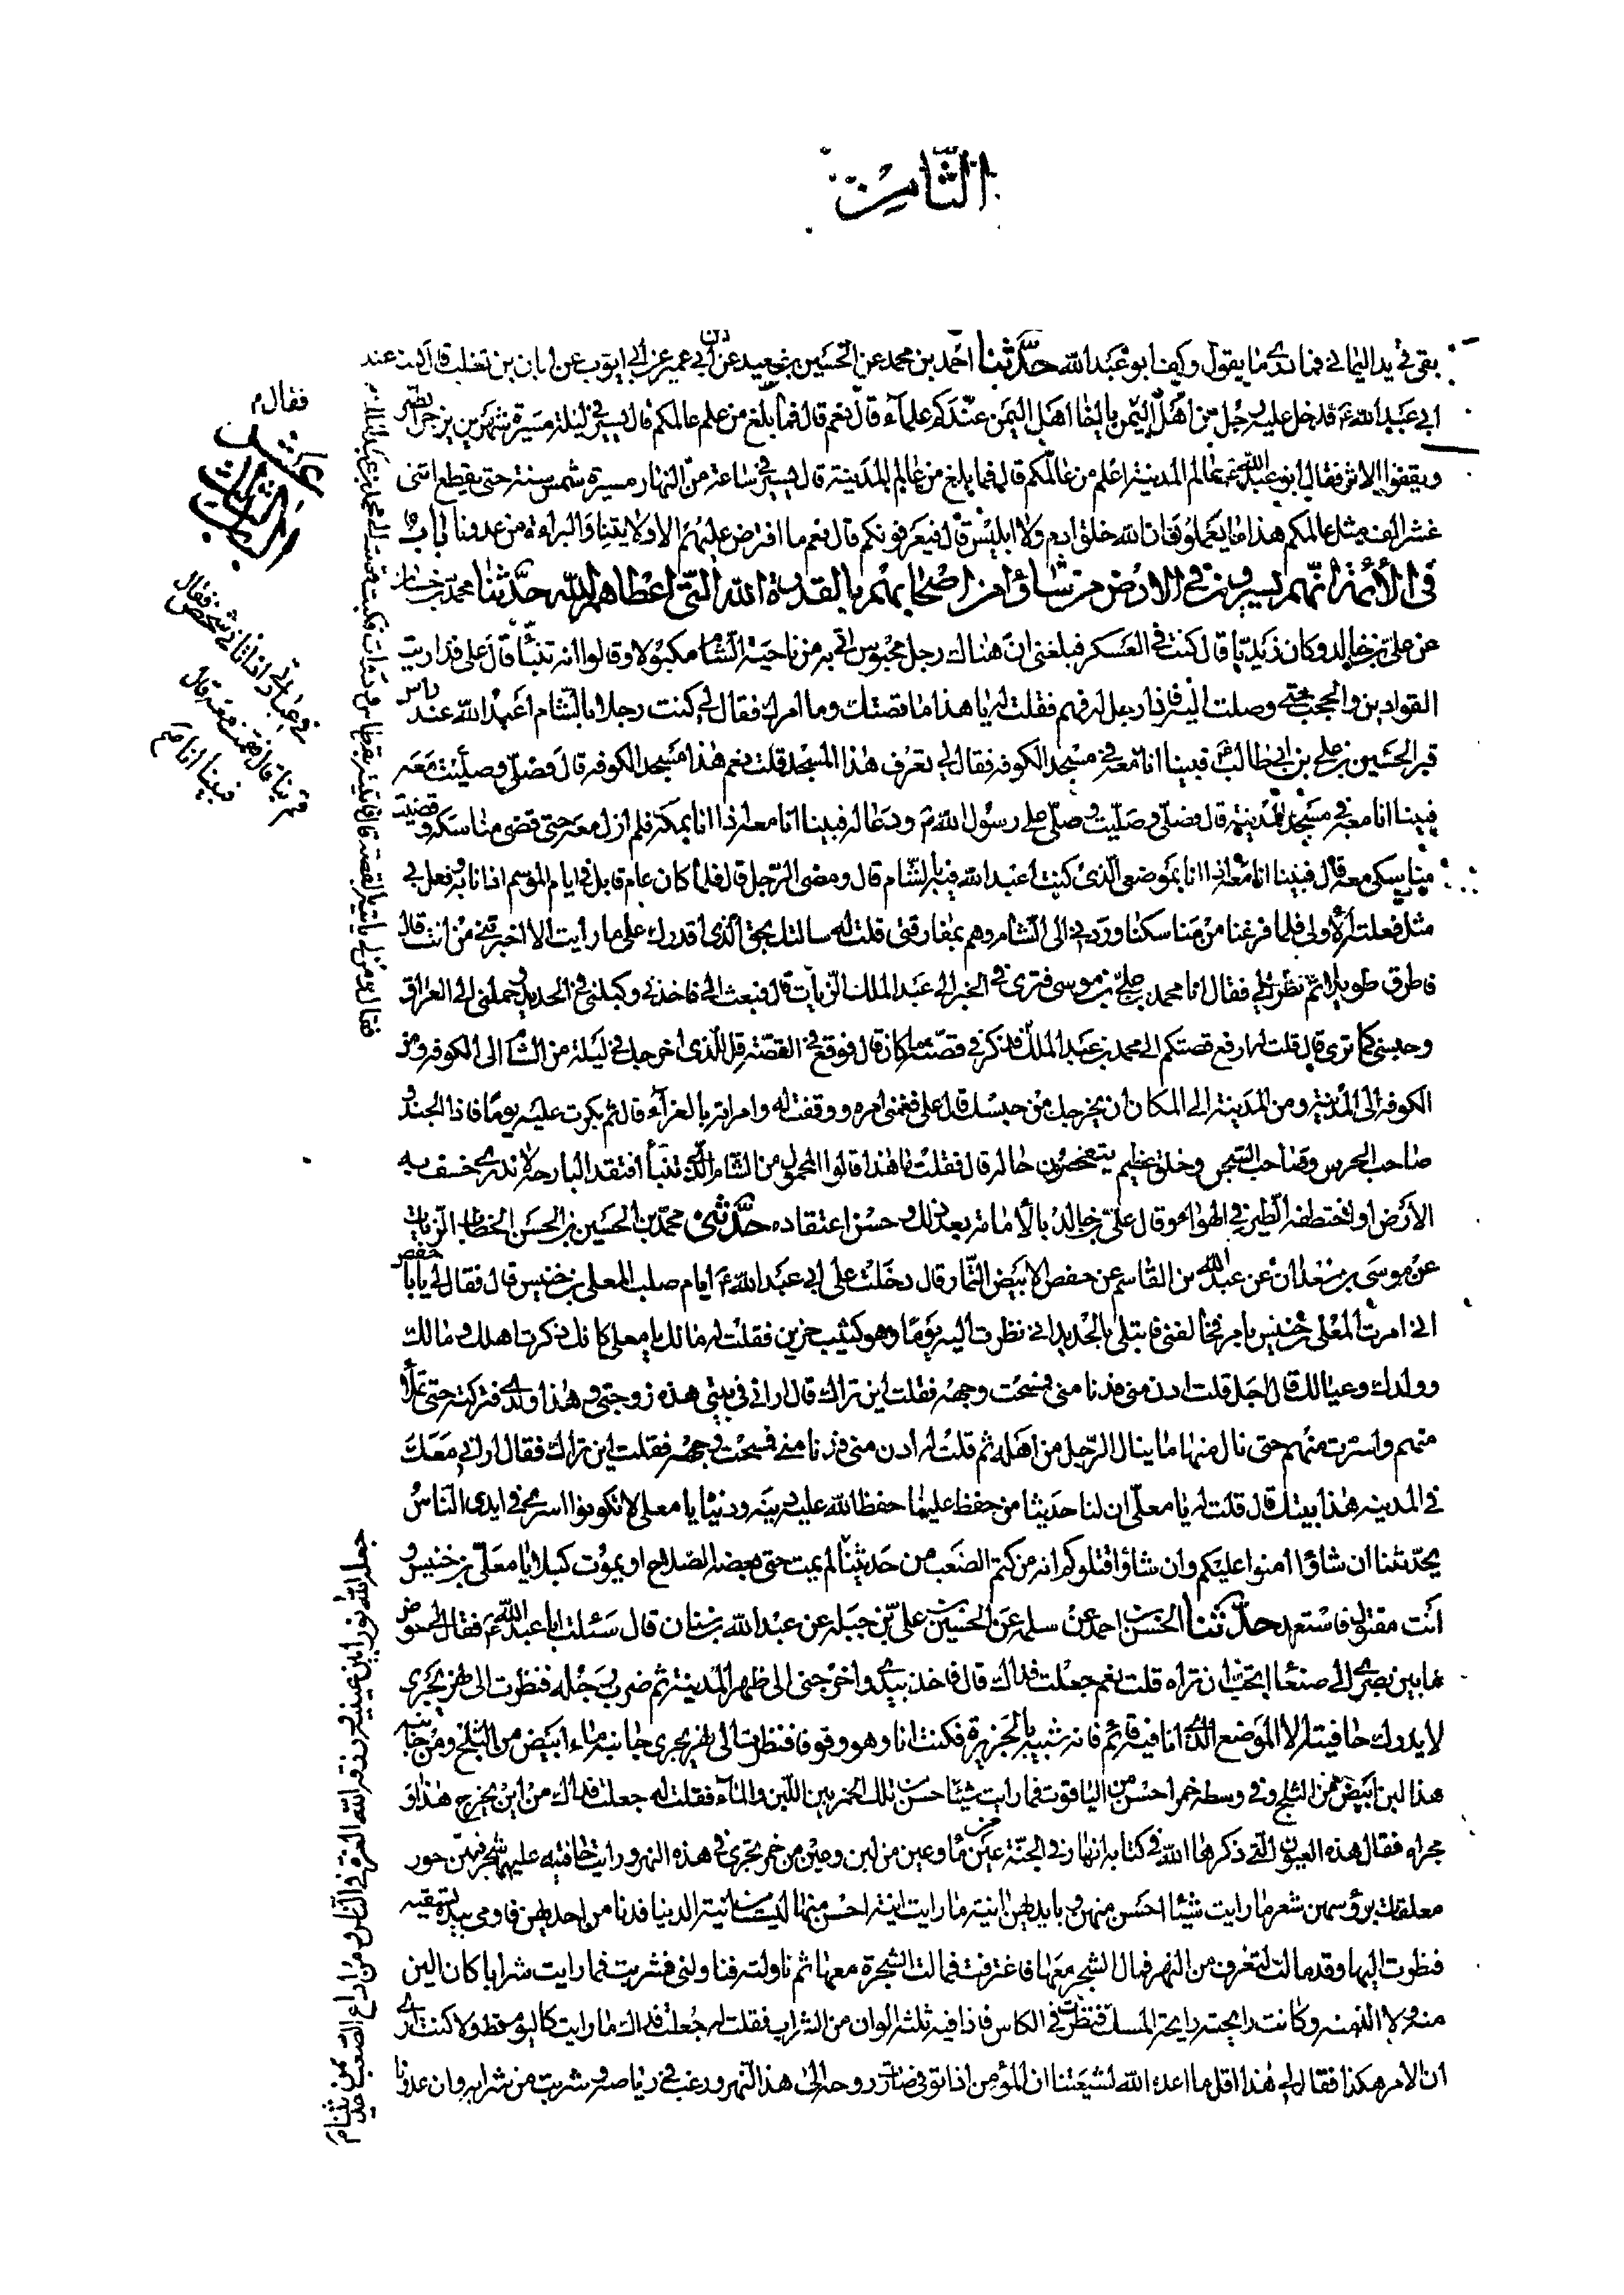 الثامن
بقى في يد اليماني فما درى ما يقول وكف ابو عبد الله حدثنا احمد بن محمد عن الحسين بن سعيد عن ابن ابي عمير عن ابي ايوب عن ابان بن تغلب قال كنت عند
ابي عبد الله ع فدخل عليه رجل من اهل اليمن فقال يا اخا اهل اليمن عندكم علماء قال نعم قال فما بلغ من علم عالمكم قال يسير في ليلة مسيرة شهرين يزجر الطير
ويقفوا الاثر فقال ابو عبد الله ع عالم المدينة اعلم من عالمكم قال فما بلغ من عالم المدينة قال يسير في ساعة من النهار مسيرة شمس سنة حتى يقطع اثنى
عشر الف مثل عالمكم هذا ما يعلمون ان الله خلق ادم ولا ابليس قال فيعرفونكم قال نعم ما افترض عليهم الا ولايتنا والبراءة من عدونا باب
في الأئمة انهم يسيرون في الارض من شاؤا من اصحابهم بالقدرة الله التي اعطاهم الله حدثنا محمد بن حسان
عن علي بن خالد وكان زيديا قال كنت في العسكر فبلغني ان هناك رجل محبوس اتى به من ناحية الشام مكبولا وقالوا انه تنبأ قال علي فداريت
القوادين والحجبة حتى وصلت اليه فاذا رجل له فهم فقلت له يا هذا ما قصتك وما امرك فقال لي كنت رجلا بالشام اعبد الله عند راس
قبر الحسين بن علي بن ابي طالب ع فبينا انا معه في مسجد الكوفه فقال لي تعرف هذا المسجد قلت نعم هذا مسجد الكوفه قال فصلى وصليت معه
فبينا انا معه في مسجد المدينة قال فصلى وصليت وصلى على رسول الله ص ودعا له فبينا انا معه اذا انا بمكة فلم ازل معه حتى قضى مناسكه وقضيت
مناسكي معه قال فبينا انا معه اذا انا بموضعي الذي كنت اعبد الله فيه بالشام قال ومضى الرجل قال فلما كان عام قابل في ايام الموسم اذا انا به فعل بي
مثل فعلته الاولى فلما فرغنا من مناسكنا وردني الى الشام وهم بمفارقتي قلت له سالتك بحق الذي اقدرك على ما رايت الا اخبرتني من انت قال
فاطرق طويلا ثم نظر الي فقال انا محمد بن علي بن موسى فترى في الخبر الى عبد الملك الزيات قال فبعث الي فاخذني وكبلني في الحديد وحملني الى العراق
وحبسني كما ترى قال قلت له ارفع قصتكم الى محمد بن عبد الملك فذكر في قصته ما كان قال فوقع في القصة قل للذي اخرجك في ليلة من الشام الى الكوفه ومن
الكوفه الى المدينة ومن المدينة الى المكان ان يخرجك من حبسك قال علي فغمني امره ووقفت له وامرته بالعزاء قال ثم بكرت عليه يوما فاذا الجند و
صاحب الحرس وصاحب السجن وخلق عظيم يتفحصون حاله قال فقلت ما هذا قالوا المحمول من الشام الذي تنبأ افتقد البارحة لا ندري خسف به
الارض او اختطفه الطير في الهواء وقال علي بن خالد بالامامة بعد ذلك وحسن اعتقاده حدثنى محمد بن الحسين بن الحسن الخطاب الزيات
عن موسى بن سعدان عن عبد الله بن القاسم عن حفص الابيض التمار قال دخلت على ابي عبد الله ع ايام صلب المعلى بن خنيس قال فقال لي يا با حفص
اني امرت المعلى بن خنيس بامر فخالفني فابتلي بالحديد اني نظرت اليه يوما وهو كئيب حزين فقلت له مالك يا معلى كانك ذكرت اهلك ومالك
وولدك وعيالك قال اجل قلت ادن مني فدنا مني فمسحت وجهه فقلت اين تراك قال اراني في بيتي هذه زوجتي وهذا ولدي فتركته حتى تملأ
منهم واسترت منهم حتى نال منها ما ينال الرجل من اهله ثم قلت له ادن مني فدنا مني فمسحت وجهه فقلت اين تراك فقال اراني معك
في المدينه هذا بيتك قال قلت له يا معلى ان لنا حديثا من حفظ علينا حفظ الله عليه دينه ودنياه يا معلى لا تكونوا اسرى في ايدي الناس
بحديثنا ان شاؤا امنوا عليكم وان شاؤا قتلوكم انه من كتم الصعب من حديثنا لم يمت حتى يعضه السلاح او يموت كبلا يا معلى بن خنيس و
انت مقتول فاستعد حدثنا الحسن بن احمد عن سلمه عن الحسين بن علي بن جبله عن عبد الله بن سنان قال سئلت ابا عبد الله ع فقال لي حوض
ما بين بصرى الى صنعا اتحب ان تراه قلت نعم جعلت فداك قال فاخذ بيدي واخرجني الى ظهر المدينة ثم ضرب برجله فنظرت الى نهر يجري
لا يدرك حافيته الا الموضع الذي انا فيه قائم فانه شبيه بالجزيرة فكنت انا وهو وقوفا فنظرت الى نهر يجري جانبه ماء ابيض من الثلج ومن جانبه
هذا لبن ابيض من الثلج وفي وسطه خمر احسن من الياقوت فما رايت شيئا احسن من تلك الخمر بين اللبن والماء فقلت له جعلت فداك من اين يخرج هذا و
مجراه فقال هذه العيون التي ذكرها الله في كتابه انهار في الجنة عين من ماء وعين من لبن وعين من خمر تجري في هذه النهر ورايت حافتيه عليهما شجر فيهن حور
معلقات برؤسهن شعر ما رايت شيئا احسن منهن وبايديهن انية ما رايت انية احسن منها ليست من انية الدنيا فدنا من احديهن فاومى بيده لتسقيه
فنظرت اليها وقد مالت لتغرف من النهر فمال الشجر معها فاغترفت فمالت الشجرة معها ثم ناولته فناولني فشربت فما رايت شرابا كان الين
منه ولا الذ منه وكانت رايحته رايحة المسك فنظرت في الكاس فاذا فيه ثلثة الوان من الشراب فقلت له جعلت فداك ما رايت كاليوم قط ولا كنت ارى
ان الامر هكذا فقال لي هذا اقل ما اعده الله لشيعتنا ان المؤمن اذا توفى صارت روحه الى هذا النهر ورعت في رياضه وشربت من شرابه وان عدونا
فقال
في عبادتي اذ انا في شخص فقال
قم بنا قال فقمت معه قال
فبينا انا معه
جعله الله نورا بين عينيه ورزقه الله العزة في الناس ومن اذاع الصعب من حديثنا